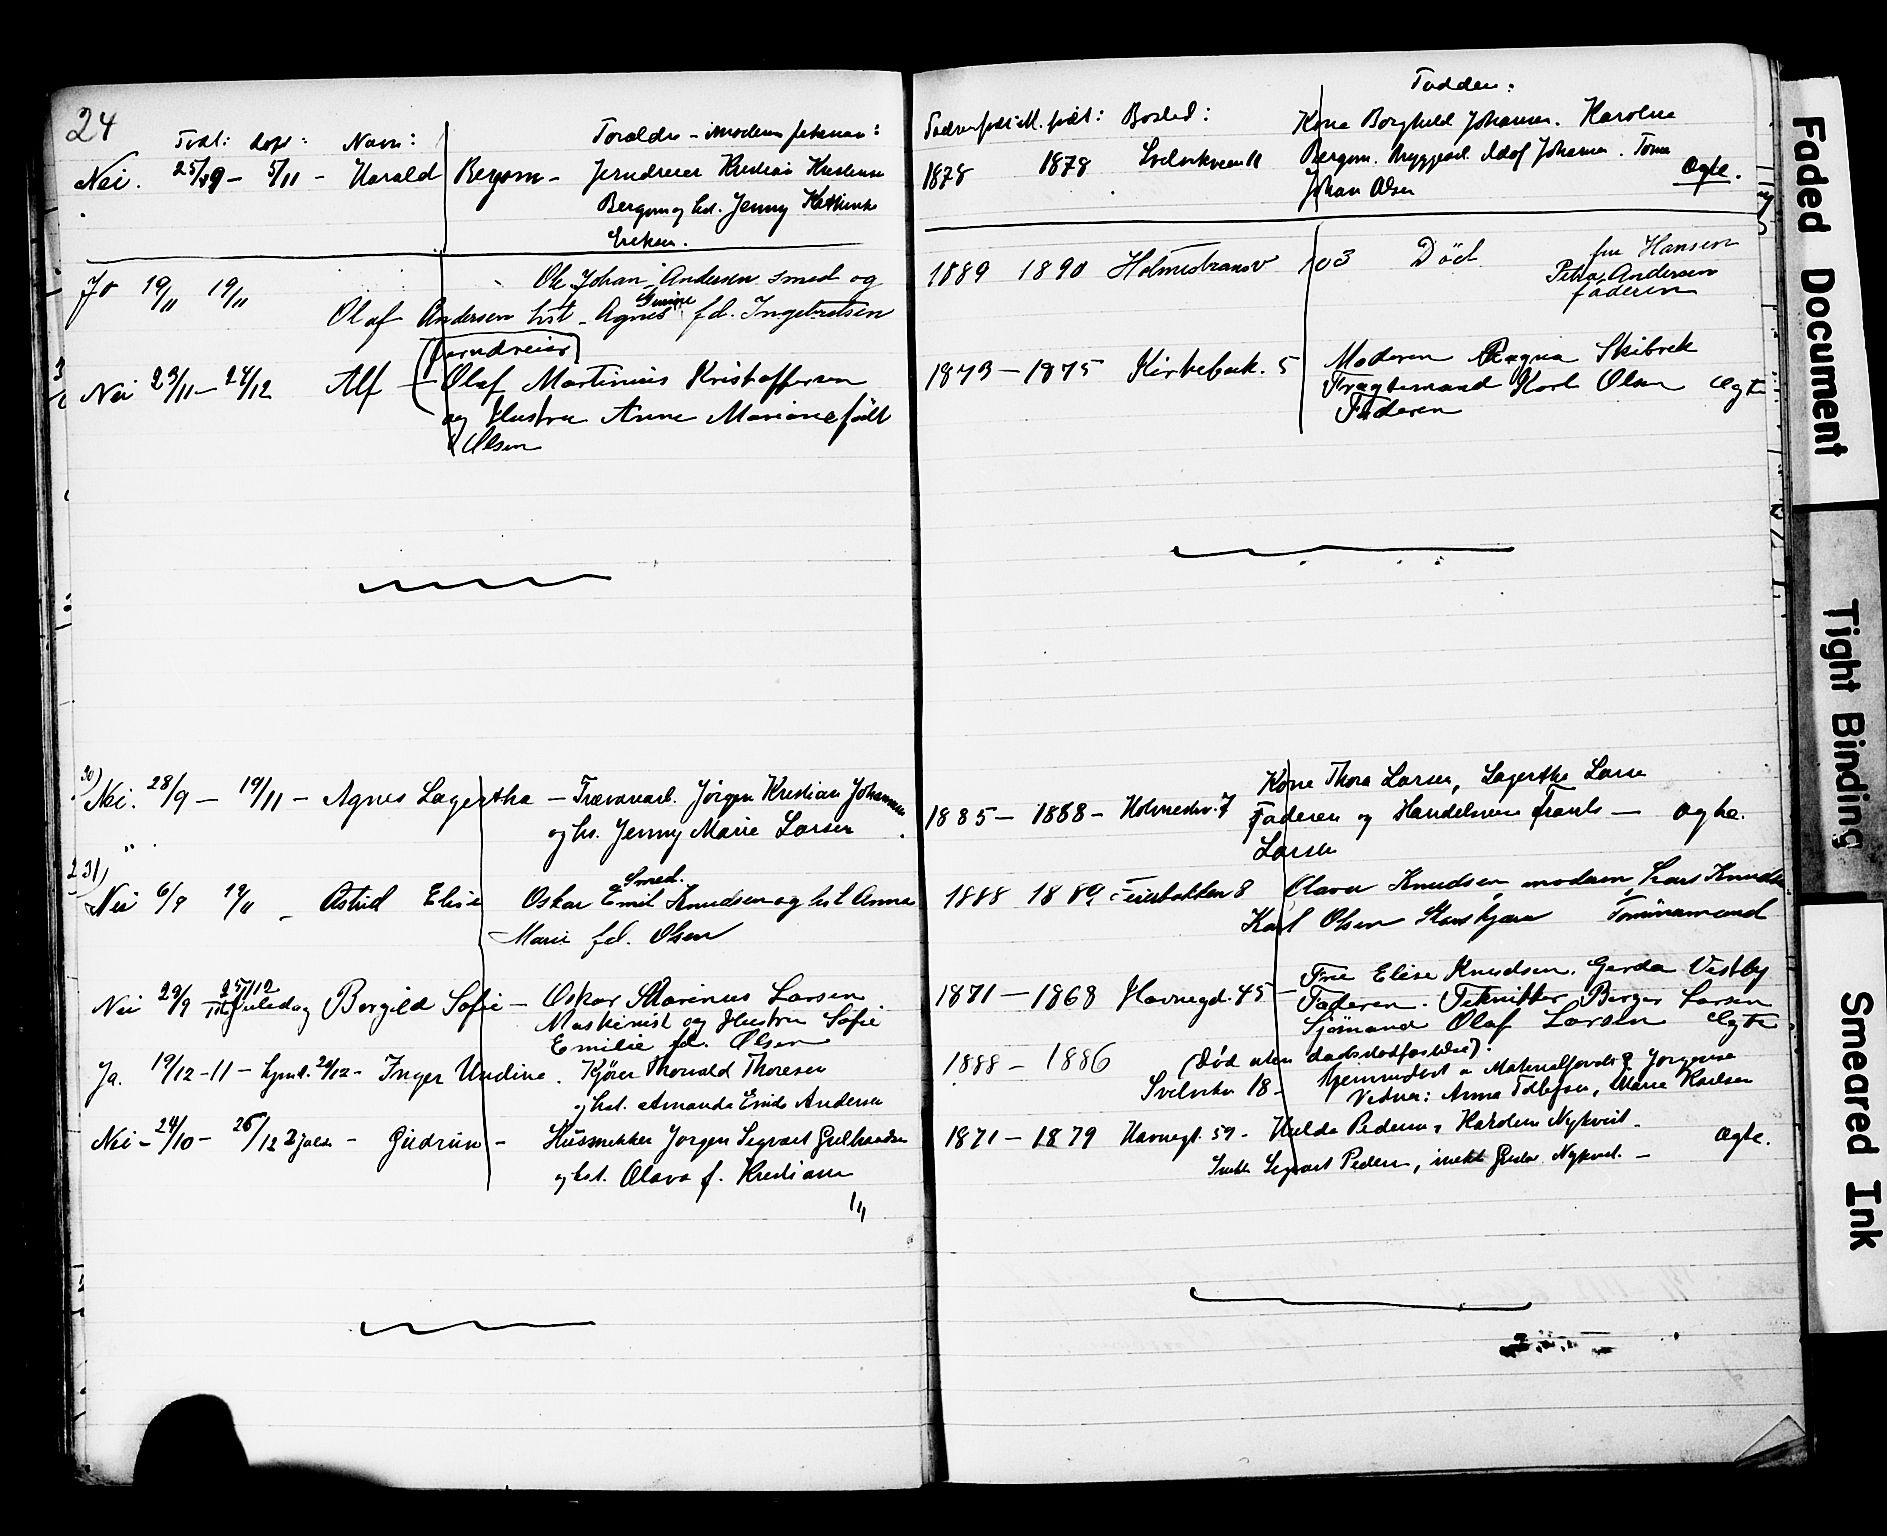 24
Født: døpt: Navn: Foraldre - moderens pikenavn:
Nei. 25/9 - 5/11 - Harald Bergom - Jerndreier Kristian Kristensen
Bergom og hst. Jenny Kathinka
Eriksen.
Ja 19/11 19/11 Ole Johan Andersen smed og
Olaf Andersen hst - Agnes Gunine fd. Ingebretsen
(Jerndreier)
Nei 23/11 - 24/12 Alf - Olaf Martinius Kristoffersen
og Hustru Anne Mariane født
Olsen
30)
Nei. 28/9 - 19/11 - Agnes Lagertha - Trævarearb. Jörgen Kristian Johannesen
og hs. Jenny Marie Larsen
31)
Nei 6/9 19/11 - Astrid Elise Oskar Emil Smed. Knudsen og hst Anna
Marie fd. Olsen
Nei 29/9 25/12 Juledag Borgild Sofie - Oskar Marinus Larsen
Maskinist og Hustru Sofie
Emilie fd. Olsen
Ja. 19/12 - 11 - hjemd. 24/12 - Inger Undine. Kjörer Thorvald Thoresen
og hst. Amanda Andersen
Nei - 24/10 - 26/12 2 juled - Gudrun - Jorgen Segvart Gulbrandsen
og hst. Olava f. Kristiansen
Faderen født: M. født: Bosted: Fadder:
Kone Borghild Johansen. Karoline
1878 1878 Svelvikveien 11 Bergom. Bryggearb. Adolf Johansen. Tom
Johan Olsen Ægte.
1889 1890 Holmestransv 103 Död fru Hansen
Petra Andersen
faderen
1873 - 1875 Kirkebak. 5 Moderen Ragna Skibrek
Fragtemand Karl Olsen Ægte
Faderen
Kone Thora Larsen, Lagertha Larsen
1885 - 1888 - Holmestr. 7 Faderen og Handelsmann Frants - Ægte.
Larsen
1888 1889 - Feierbakken 8 Olava Knudsen moderen, Lars Knudsen
Karl Olsen Tömmermand
Fru Elise Knudsen. Gerda Vestby
1871 - 1868 Havnegd. 45 - Faderen. Tekniker Birger Larsen
Sjömand Olaf Larsen Ægte
1888 - 1886 (Död uten daabsbekræftelse).
Svelvikv 18 - Hjemmedöbt av Materialforvalter Jorgensen
Vidner: Anna Tollefsen, Marie Karlsen
1871 - 1879 Havnegt. 59 - Hulda Pedersen, Karoline Nykvist -
Segvart Pedersen, Nykvist. - Ægte.
Faded Document
Tight Binding
Smeared Ink